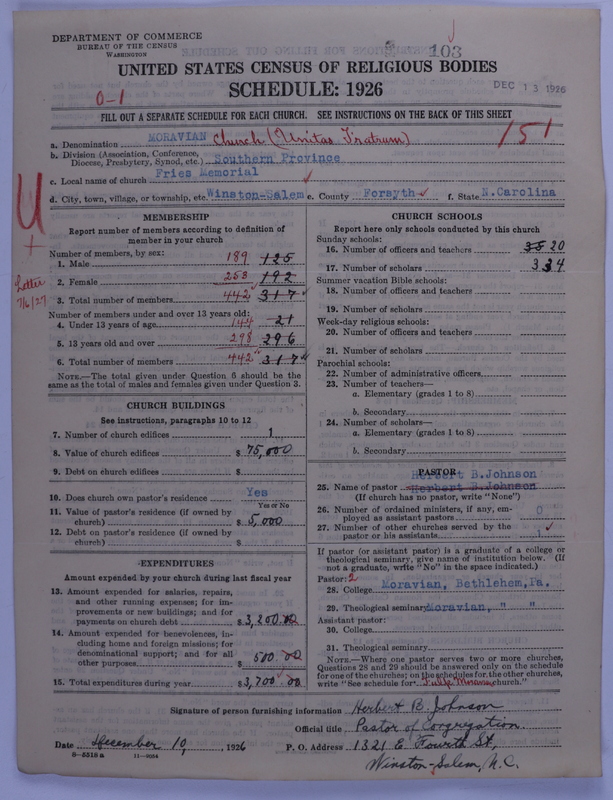 DEPARTMENT OF COMMERCE
BUREAU OF THE CENSUS
WASHINGTON
103
UNITED STATES CENSUS OF RELIGIOUS BODIES
SCHEDULE: 1926
DEC 13 1926
0-1
FILL OUT A SEPARATE SCHEDULE FOR EACH CHURCH. SEE INSTRUCTIONS ON THE BACK OF THIS SHEET
151
a. Denomination MORAVIAN Church (Unitas Fratrum)
b. Division (Association, Conference, Diocese, Presbytery, Synod, etc.) Southern Province
c. Local name of church Fries Memorial
d. City, town, village, or township, etc. Winston-Salem e. County Forsyth f. State N.Carolina
U
+
Letter
7/6/27
MEMBERSHIP
Report number of members according to definition of
member in your church
Number of members, by sex:
1. Male 189 125
2. Female 253 192
3. Total number of members 442 317
Number of members under and over 13 years old:
4. Under 13 years of age 144 21
5. 13 years old and over 298 296
6. Total number of members 442 317
NOTE.—The total given under Question 6 should be the
same as the total of males and females given under Question 3.
CHURCH BUILDINGS
See instructions, paragraphs 10 to 12
7. Number of church edifices 1
8. Value of church edifices $ 75,000
9. Debt on church edifices $
10. Does church own pastor's residence Yes
Yes or No
11. Value of pastor's residence (if owned by
church) $ 5,000
12. Debt on pastor's residence (if owned by
church) $
EXPENDITURES
Amount expended by your church during last fiscal year
13. Amount expended for salaries, repairs,
and other running expenses; for im-
provements or new buildings; and for
payments on church debt $3,200.00
14. Amount expended for benevolences, in-
cluding home and foreign missions; for
denominational support; and for all
other purposes 500.00
15. Total expenditures during year $3,700.00
CHURCH SCHOOLS
Report here only schools conducted by this church
Sunday schools:
16. Number of officers and teachers 35 20
17. Number of scholars 334
Summer vacation Bible schools:
18. Number of officers and teachers
19. Number of scholars
Week-day religious schools:
20. Number of officers and teachers
21. Number of scholars
Parochial schools:
22. Number of administrative officers
23. Number of teachers—
a. Elementary (grades 1 to 8)
b. Secondary
24. Number of scholars—
a. Elementary (grades 1 to 8)
b. Secondary
PASTOR
Herbert B.Johnson
25. Name of pastor Herbert B.Johnson
(If church has no pastor, write "None")
26. Number of ordained ministers, if any, em-
ployed as assistant pastors 0
27. Number of other churches served by the
pastor or his assistants 1
If pastor (or assistant pastor) is a graduate of a college or
theological seminary, give name of institution below. (If
not a graduate, write "No" in the space indicated.)
Pastor: 2
28. College Moravian, Bethlehem, Pa.
29. Theological seminary Moravian, " "
Assistant pastor:
30. College
31. Theological seminary
NOTE.—Where one pastor serves two or more churches,
Questions 28 and 29 should be answered only on the schedule
for one of the churches; on the schedules for the other churches,
write "See schedule for church."
Signature of person furnishing information Herbert B. Johnson
Official title Pastor of Congregation
Date December 10, 1926 P. O. Address 1321 E. Fourth St,
8—5516 a 11—9034
Winston-Salem, N.C.